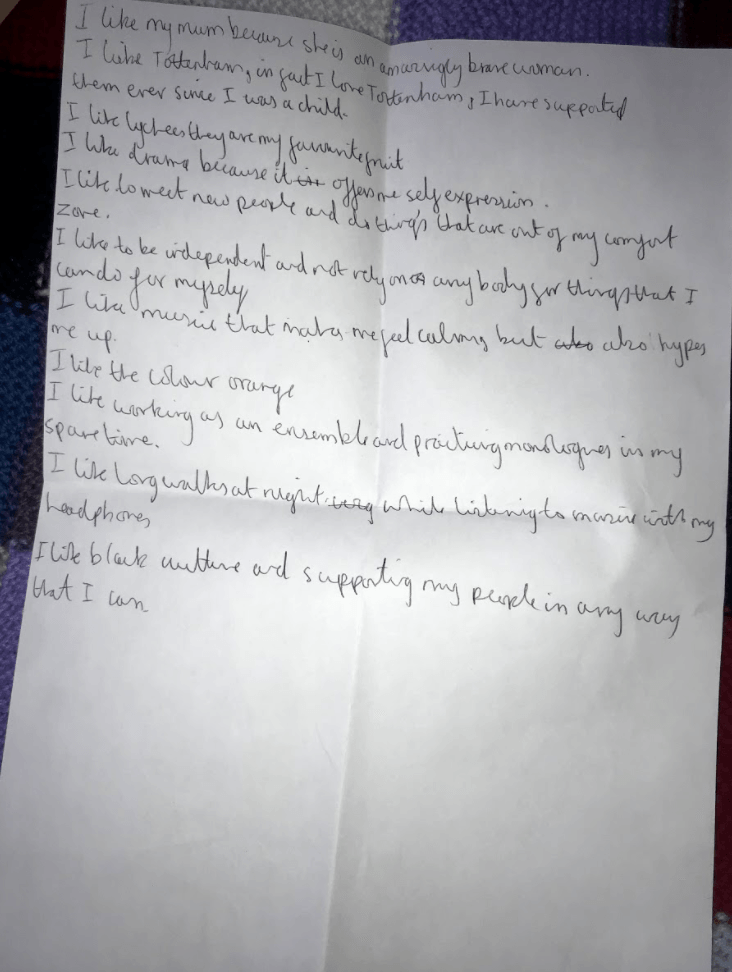 I like my mum because she is an amazingly brave woman.
I like Tottenham, in fact I love Tottenham, I have supported
them ever since I was a child.
I like lychees they are my favourite fruit
I like drama because it offers me self expression.
I like to meet new people and do things that are out of my comfort
zone.
I like to be independent and not rely on any body for things that I
can do for myself
I like music that makes me feel calm, but also also hypes
me up.
I like the colour orange
I like working as an ensemble and practicing monologues in my
spare time.
I like long walks at night while listening to music with my
headphones
I like black culture and supporting my people in any way
that I can